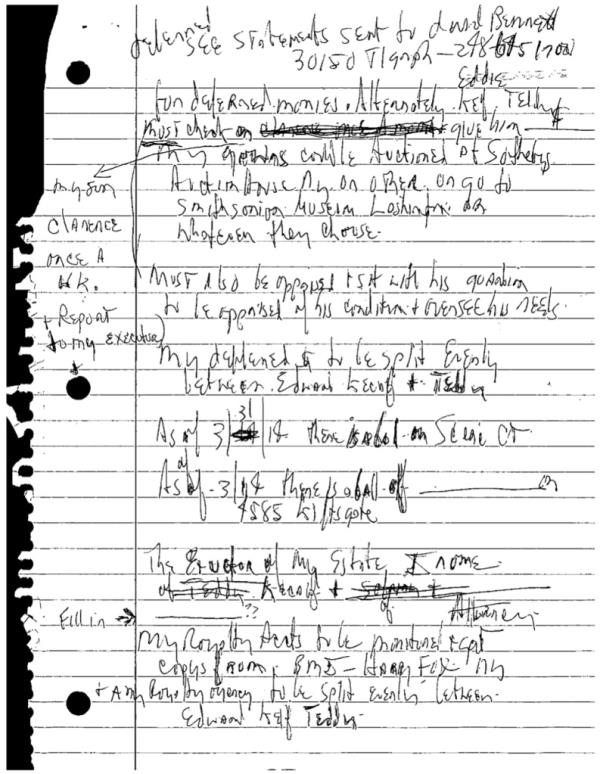 deferred
SEE Statements sent to David Bennett
30150 Tlgraph - 248
Eddie
for deferred monies. Alternately. Kef, Teddy
must check on clarence once A month give him
My gowns could be Auctioned At Sothebys
Auction House Ny or other or go to
Smithsonian Museum Washington or
whatever they choose.
my son
CLARENCE
once A
WK.
+ Report
to my executor
Must also be apprised + sit with his guardian
to be apprised of his condition + oversee his needs.
My deferred is to be split Evenly
between. Edward Kecalf + Teddy
31
As of 3/ /14 there is a bal on Scenic Ct
As of 3/ 14 there is a bal of on
4585 Kl
The Executor of My Estate I name
of Teddy Kecalf +
Attorney
Fill in → ??
My Royalty Accts to be monitored + get
copys from. BMI - Harry Fox Ny
+ Any Royalty owed to be split evenly between
Edward Kef Teddy.